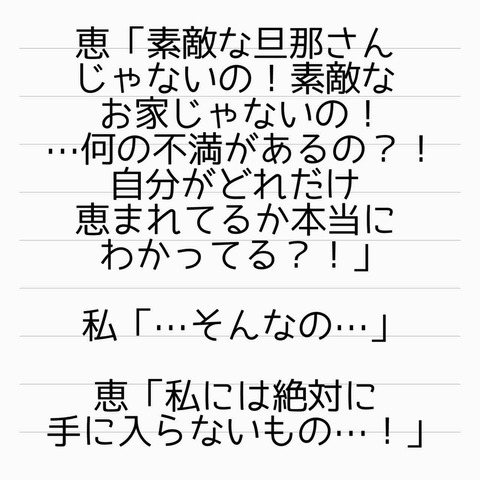 恵「素敵な旦那さん
じゃないの！素敵な
お家じゃないの！
…何の不満があるの？！
自分がどれだけ
恵まれてるか本当に
わかってる？！」
私「…そんなの…」
恵「私には絶対に
手に入らないもの…！」